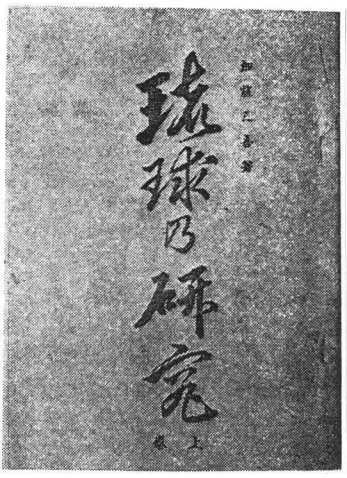 加藤三吾著
琉球乃研究
上卷